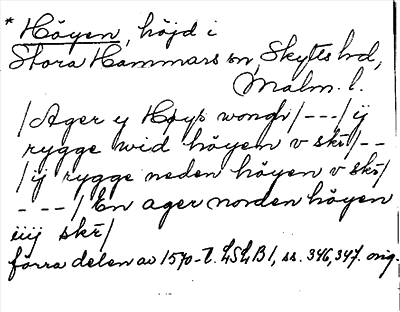 * Höyen, höjd i
Stora Hammars sn, Skytts hd,
Malm. l.
/Ager ij Høys wongh/---/ij
rygge wid höyen v skr/--
/ij rygge neden höyen v skr/
---/En ager norden höyen
iiij skr/
förra delen av 1570-t. LSLB 1, ss. 346, 347. orig.